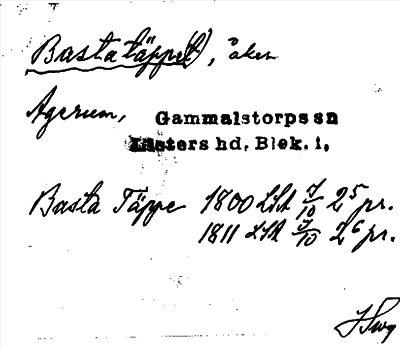 Bastatäppe(t), åker
Agerum, Gammalstorps sn
Listers hd, Blek. l.
Basta Täppe 1800 LSA 7/10 25 pr.
1811 LSA 7/10 26 pr.